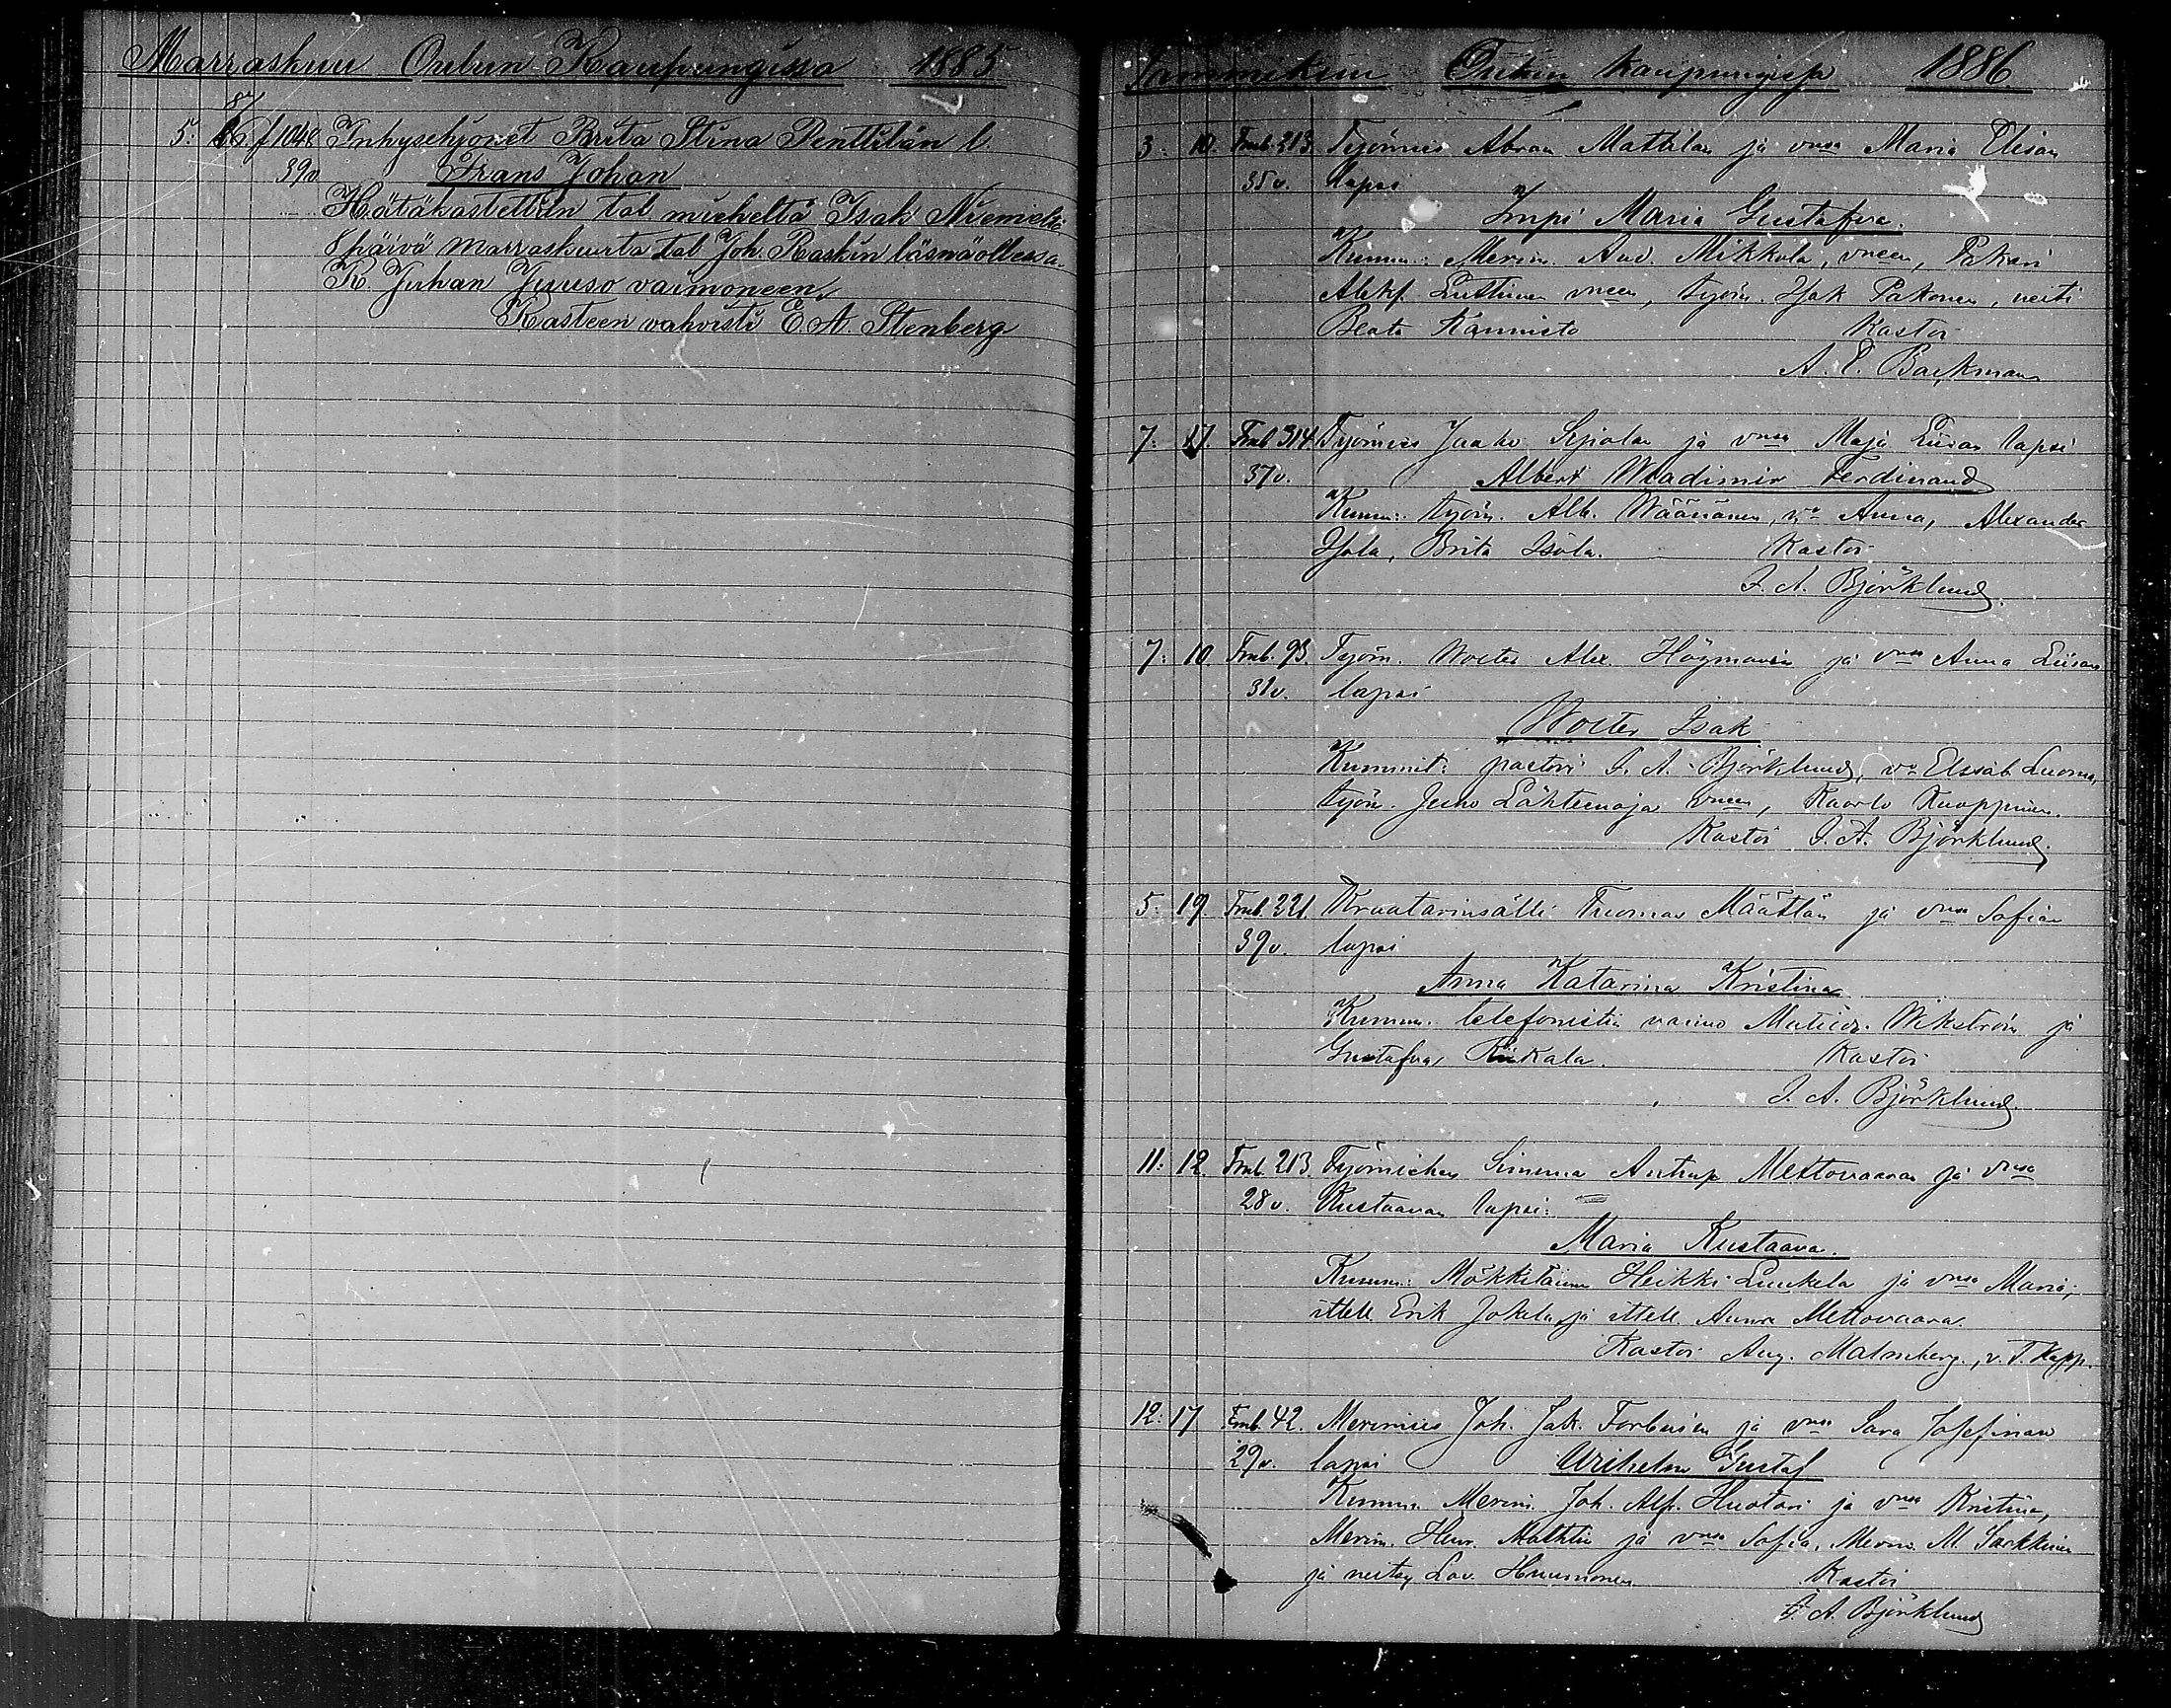 Marraskuu Oulun Kaupungissa 1885
87
5: 16. f 1048 Inhysehjonet Brita Stina Penttilän l.
39v Frans Johan
Hätäkastettiin tal mieheltä Isak Niemeltä
8 päivä Marraskuuta tal Joh. Raskin läsnäollessa.
K. Juhan Juuso vaimoneen,
Kasteen vahvisti E A. Stenberg
Tammikuu Oulun kaupungissa 1886.
3. 10. Fmb. 213. Työmies Abram Mattilan ja vmsa Maria Elisan
35 v. lapsi
Impi Maria Gustafva.
Kumm.: Merim. And. Mikkola, vneen, Pakari
Aleks. Luttinen vneen, työm. Isak Pakonen, neiti
Beata Kannisto Kastoi
A. E. Backman
7: 17. Fmb 314. Työmies Jaako Sipolan ja vmsa Maja Liisan lapsi
37v. Albert Wladimir Ferdinand
Kumm: työm. Alb. Wäänänen, vo Anna, Alexander
Isola, Brita Isola. Kastoi
I. A. Björklund.
7: 10. Fmb. 93. Työm. Wolter Alex. Högmanin ja vmsa Anna Liisan
31v. lapsi
Wolter Isak
Kummit: pastori I. A. Björklund, vo Elssab. Luoma,
työm. Juho Lähteenoja vneen, Kaarlo Kuoppinen.
Kastoi I. A. Björklund.
5: 19. Fmb. 221. Kraatarinsälli Tuomas Määttän ja vmsa Sofian
39v. lapsi
Anna Katarina Kristina
Kumm. telefonistin vaimo Matilda Wikström ja
Gustafva Riikala. Kastoi
I. A. Björklund.
11: 12. Fmb. 213. Työmiehen Simuna Antinp. Mettovaaran ja vmsa
28v. Kustaavan lapsi:
Maria Kustaava.
Kumm: Mökkiläinen Heikki Luukela ja vmsa Maria;
ittell. Erik Jokela, ja ittell. Anna Mettovaara.
Kastoi Aug. Malmberg., v. T. Kapp.
12: 17 Fmb. 42. Merimies Joh. Jak. Forbusin ja vmsa Sara Josefinan
29v. lapsi Wilhelm Gustaf
Kumm. Merim. Joh. Alf. Huotari ja vmsa Kristina,
Merim. Henr. Mathlin ja vmsa Sofia, Merim. M. Sarkkinen
ja neitsy Lov. Huumonen Kastoi
I. A. Björklund